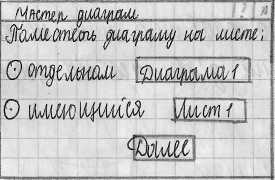 Мастер диаграм
Поместить диаграму на листе:
отдельном Диаграма 1
имеющийся Лист 1
Далее